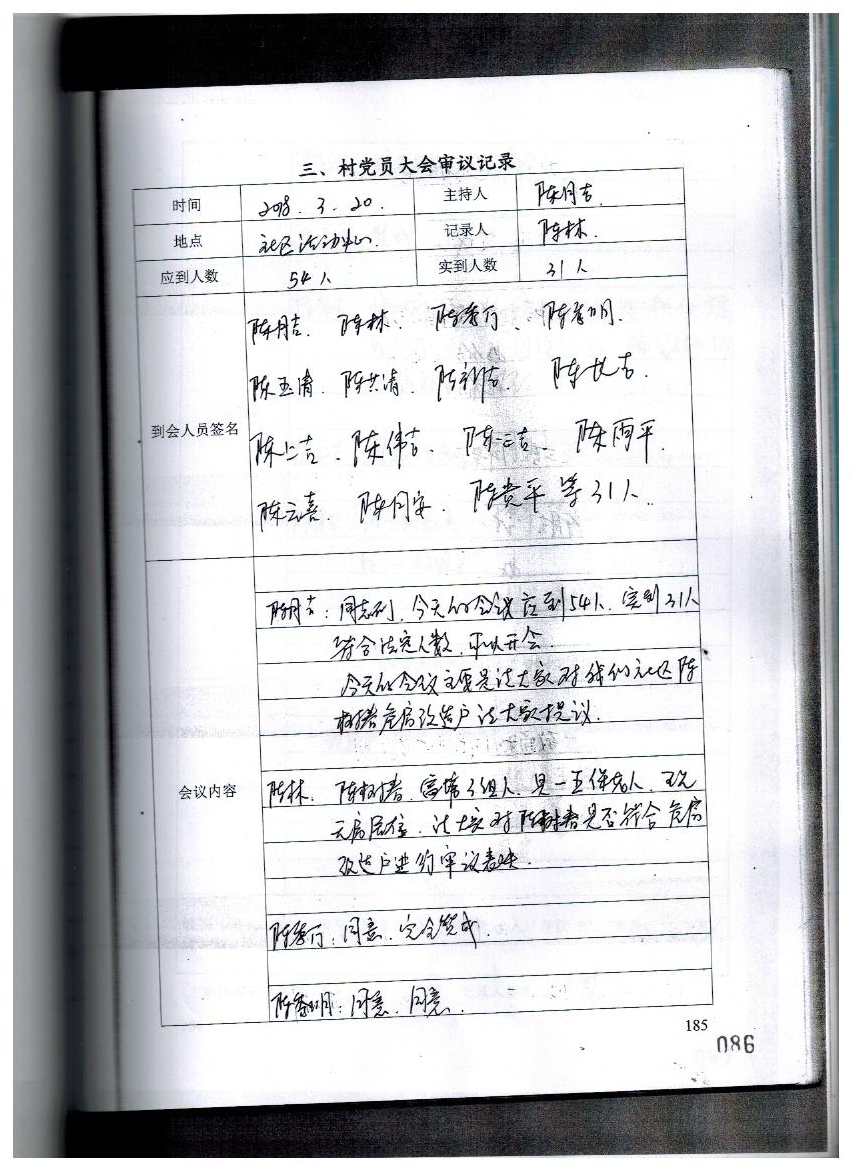 三、村党员大会审议记录
时间 2018.3.20. 主持人 陈月吉
地点 社区活动中心. 记录人 陈林.
应到人数 54人 实到人数 31人
到会人员签名
陈月吉. 陈林. 陈孝行. 陈孝明.
陈玉清. 陈共清. 陈利吉. 陈长吉.
陈上吉. 陈伟吉. 陈二吉 陈雨平.
陈云喜. 陈同安. 陈贵平等31人.
会议内容
陈月吉:同志们,今天的会议应到54人.实到31人
符合法定人数.可以开会.
今天的会议主要是请大家对我们社区陈
树春危房改造户请大家提议.
陈林.陈树春.高墙3组人.是一五保老人.现
无房居住.请大家对陈树春是否符合危房
改造户进行审议表决.
陈孝行:同意.完全赞成.
陈孝明:同意.同意.
185
086